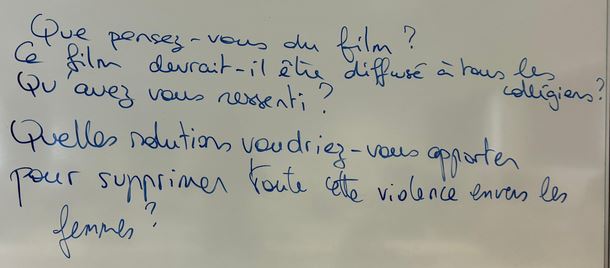 Que pensez-vous du film ?
Ce film devrait-il être diffusé à tous les
collégiens ?
Qu'avez vous ressenti ?
Quelles solutions voudriez-vous apporter
pour supprimer toute cette violence envers les
femmes ?